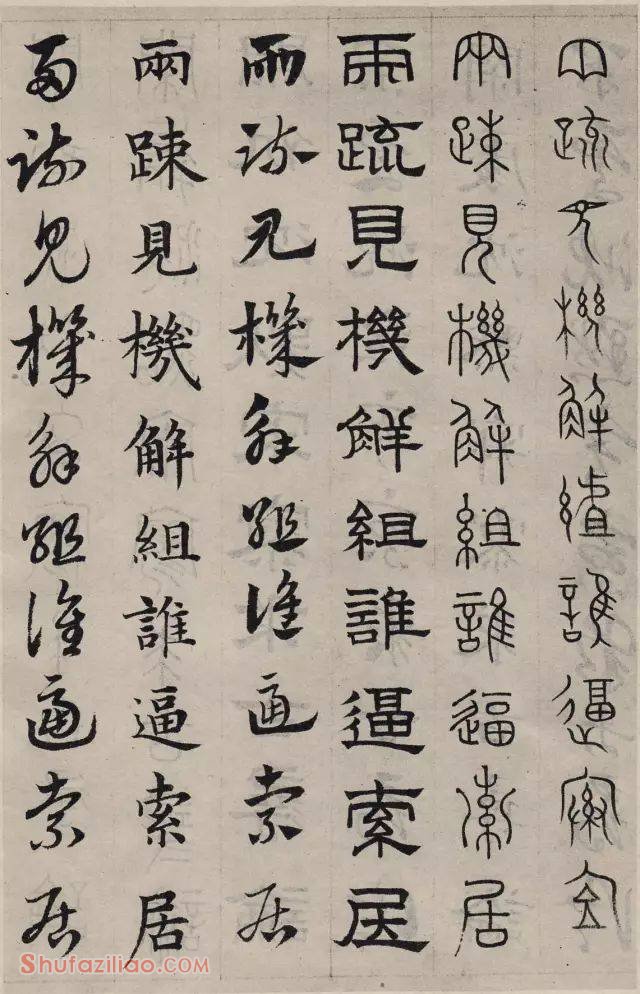 兩疏見機解組誰逼索居
兩疎見機解組誰逼索居
兩疏見機解組誰逼索居
兩疏見機解組誰逼索居
兩踈見機解組誰逼索居
兩疏見機解組誰逼索居
Shufaziliao.COM